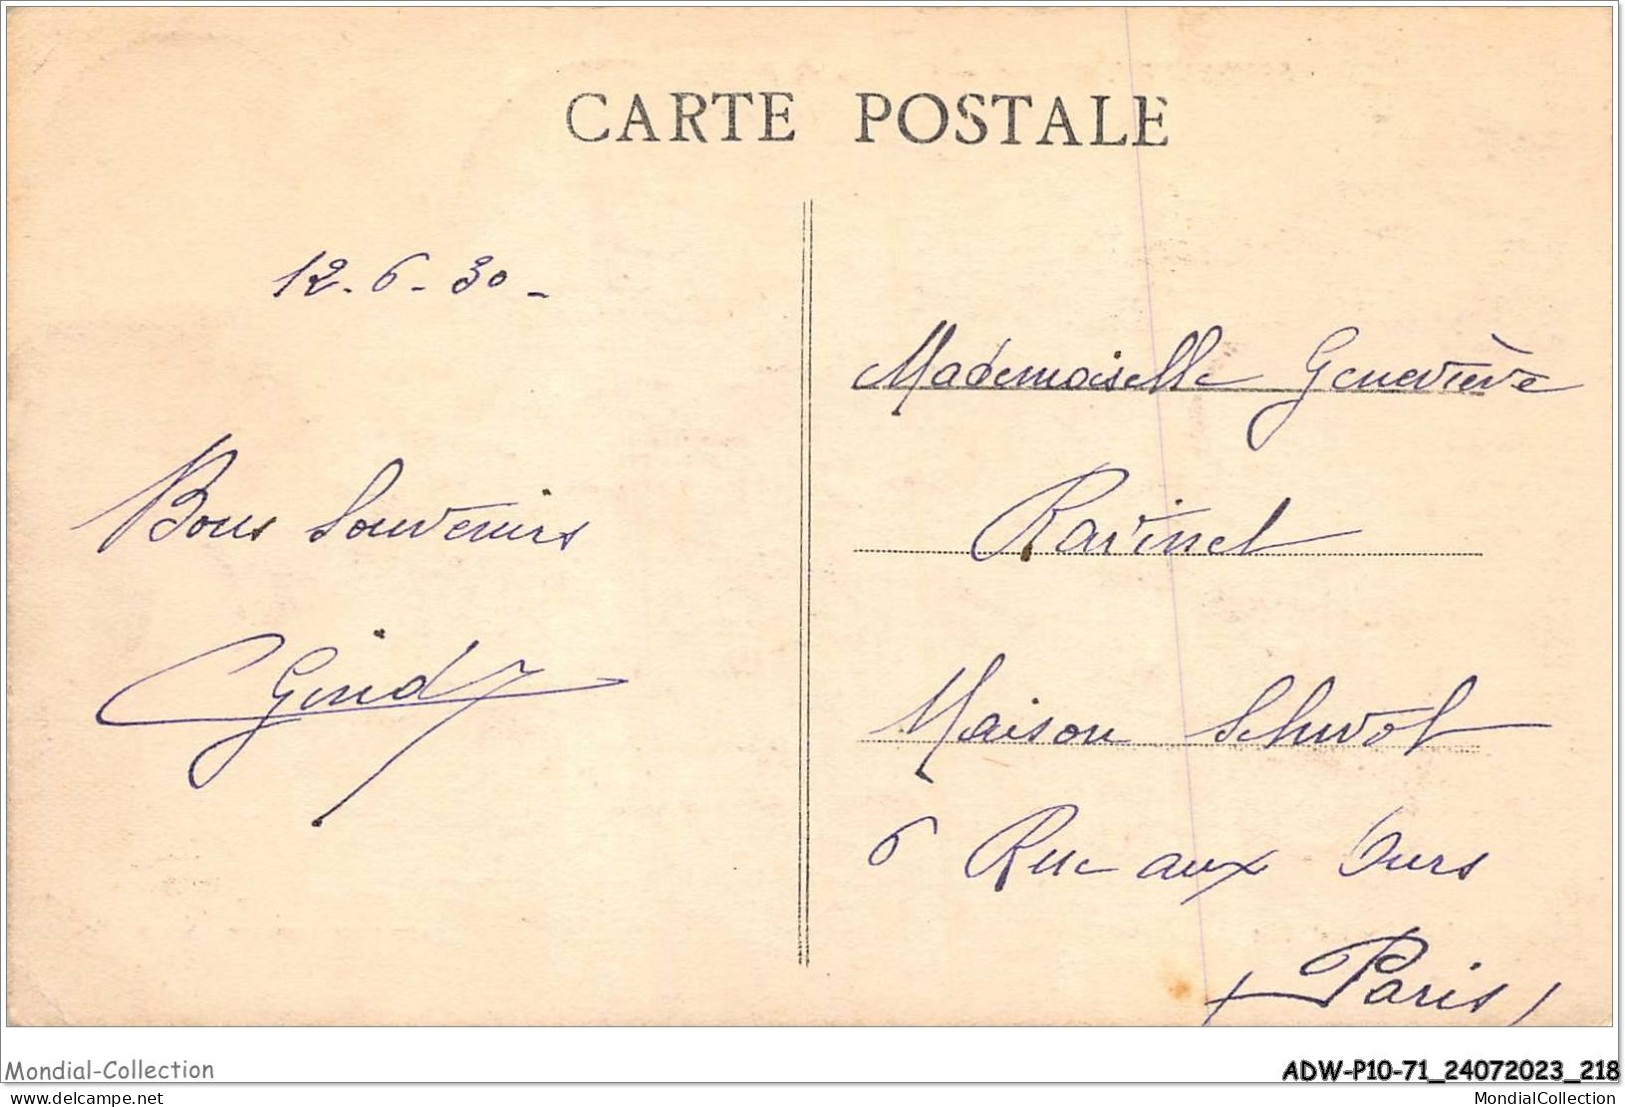 CARTE POSTALE
12-6-30-
Bons Souvenirs
Mademoiselle Geneviève
Ravinet
Maison Schwob
6 Rue aux Ours
(Paris)
Mondial-Collection
ADW-P10-71_24072023_218
delcampe.net
MondialCollection